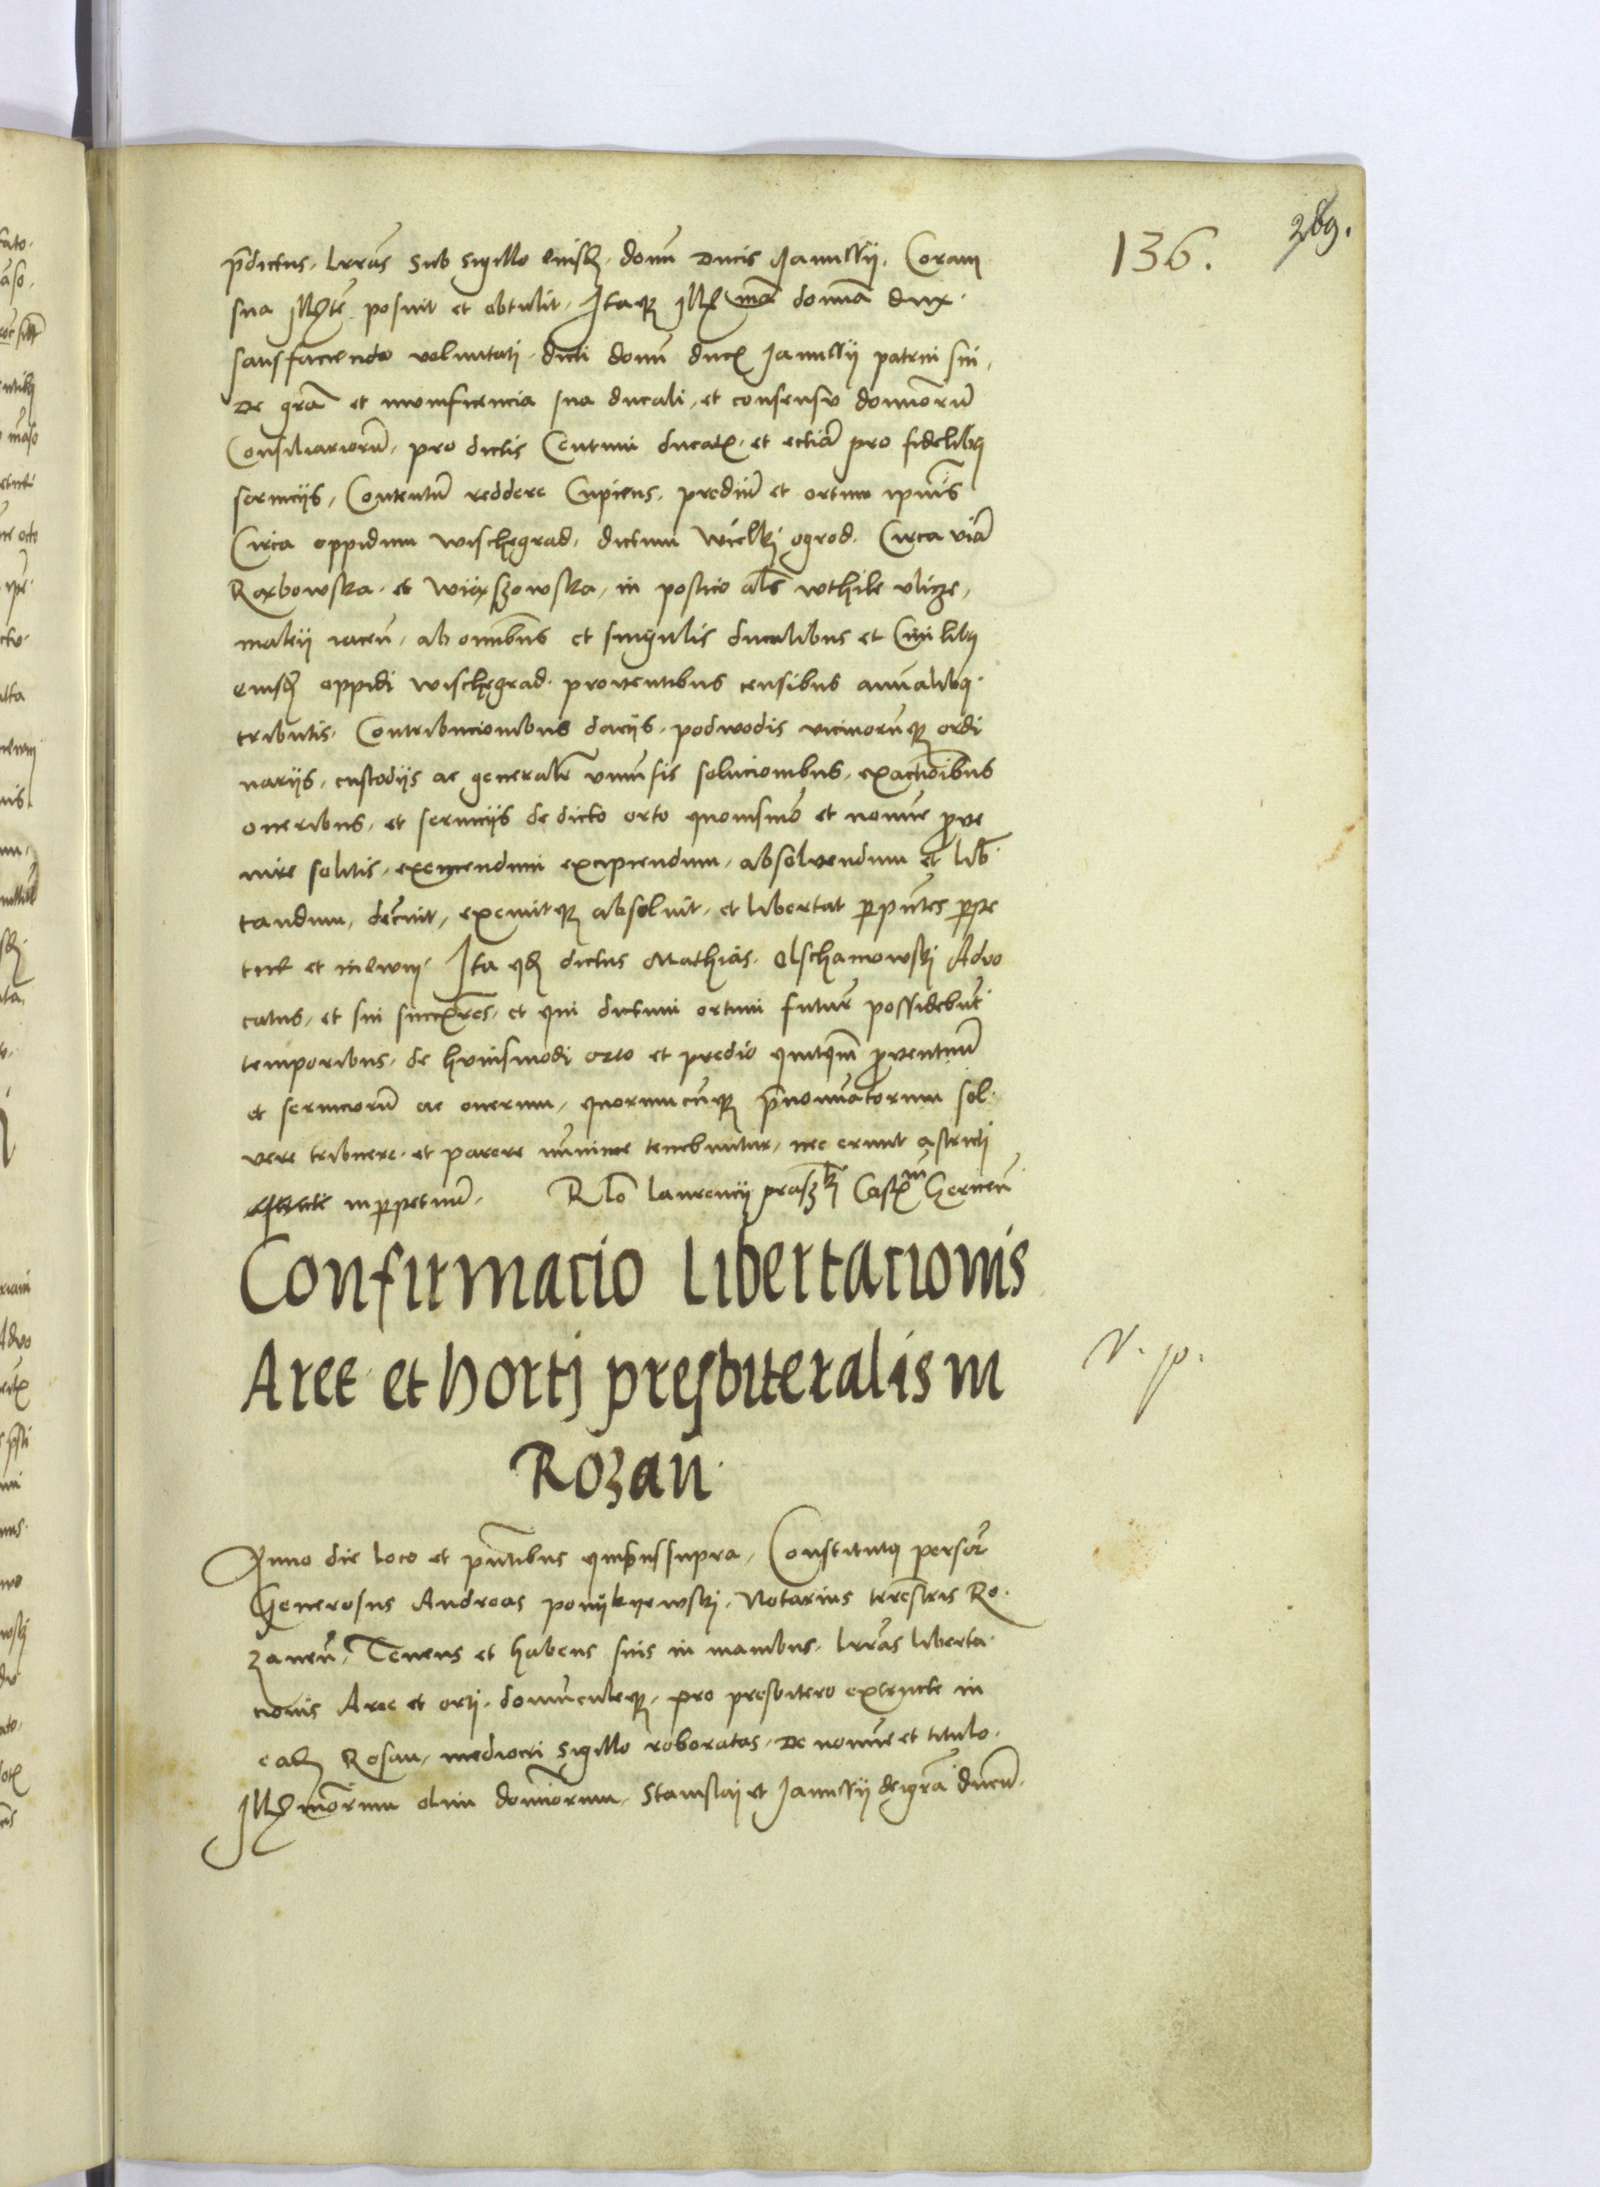 136.
289.
p̄dictus. l̄ras sub sigillo eiusdꝫ. domī Ducis Janussii. Coram
sua Illᵗē posuit et obtulit. Itaqꝫ Illma domīa dux.
satisfaciendo voluntati. dicti domī ducꝭ Janussii patrui sui,
De grā et munificencia sua ducali, et consensu dominorū
Consiliariorū, pro dictis Centum ducatꝭ. et eciā pro fidelibꝫ
seruiciis, Contentū reddere Cupiens, prediū et ortum ipsius
Circa oppidum wischegrad, dictum wielki ogrod. Circa viā
Rąbowska. et Wiąrszowska, in postico als wthile vlicze,
maleii iacen̄, ab omnibus et singulis ducalibus et Ciuilibꝫ
eiusdꝫ oppidi wischegrad. prouentibus censibus annualibꝫ
tributis. Contribucionibus daciis. podwodis vicinorumqꝫ ordi
nariis, custodiis ac generalr̄ vniuersis solucionibus, exactionibus
oneribus, et seruiciis de dicto orto quouismo et nomīe proue
nire solitis, eximendum excipiendum, absoluendum et lib̄
tandum, decreuit, exemitqꝫ absoluit, et libertat per p̄ntes perpe
tue et in ewm. Ita qd dictus Mathias. Olschanowski Aduo
catus, et sui succ̄res, et qui dictum ortum futur̄ possidebunt
temporibus, de huiusmodi orto et predio quitqm̄ prouentuū
et seruiciorū ac onerum, quorumcumqꝫ p̄nominatorum sol
uere tribuere. et parere minime tenebuntur, nec erunt astricti
in perpetuū. Rlō laurencii prasz̄ki Castꝭⁿⁱ Gernen̄
Confirmacio Libertacionis
Aree et horti presbiteralis in
Rozan.
V. p.
Anno die loco et p̄ntibus quibus supra, Constitutꝫ person̄r
Generosus Andreas ponikyewski. Notarius terrestris Ro.
zanen̄, Tenens et habens suis in manibus. l̄ras liberta
cionis Aree et orti. domunculeqꝫ. pro presbitero exstructe in
eadꝫ Rosan, mediocri sigillo roboratas. De nomīe et titulo.
Illmorum olim dominorum. Stanislai et Janussii dei grā ducū.